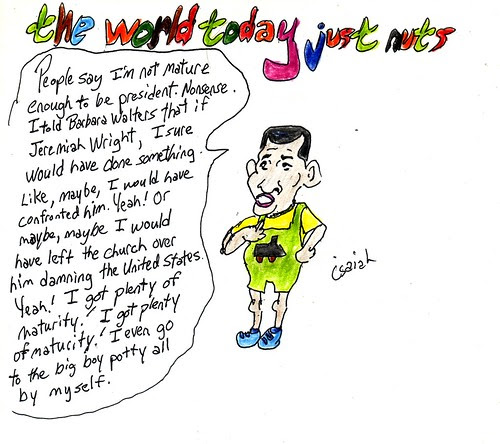 the world today just nuts
People say I'm not mature
enough to be president. Nonsense.
I told Barbara Walters that if
Jeremiah Wright, I sure
would have done something.
Like, maybe, I would have
confronted him. Yeah! Or
maybe, maybe I would
have left the church over
him damning the United States.
Yeah! I got plenty of
maturity! I got plenty
of maturity! I even go
to the big boy potty all
by myself.
isaiah